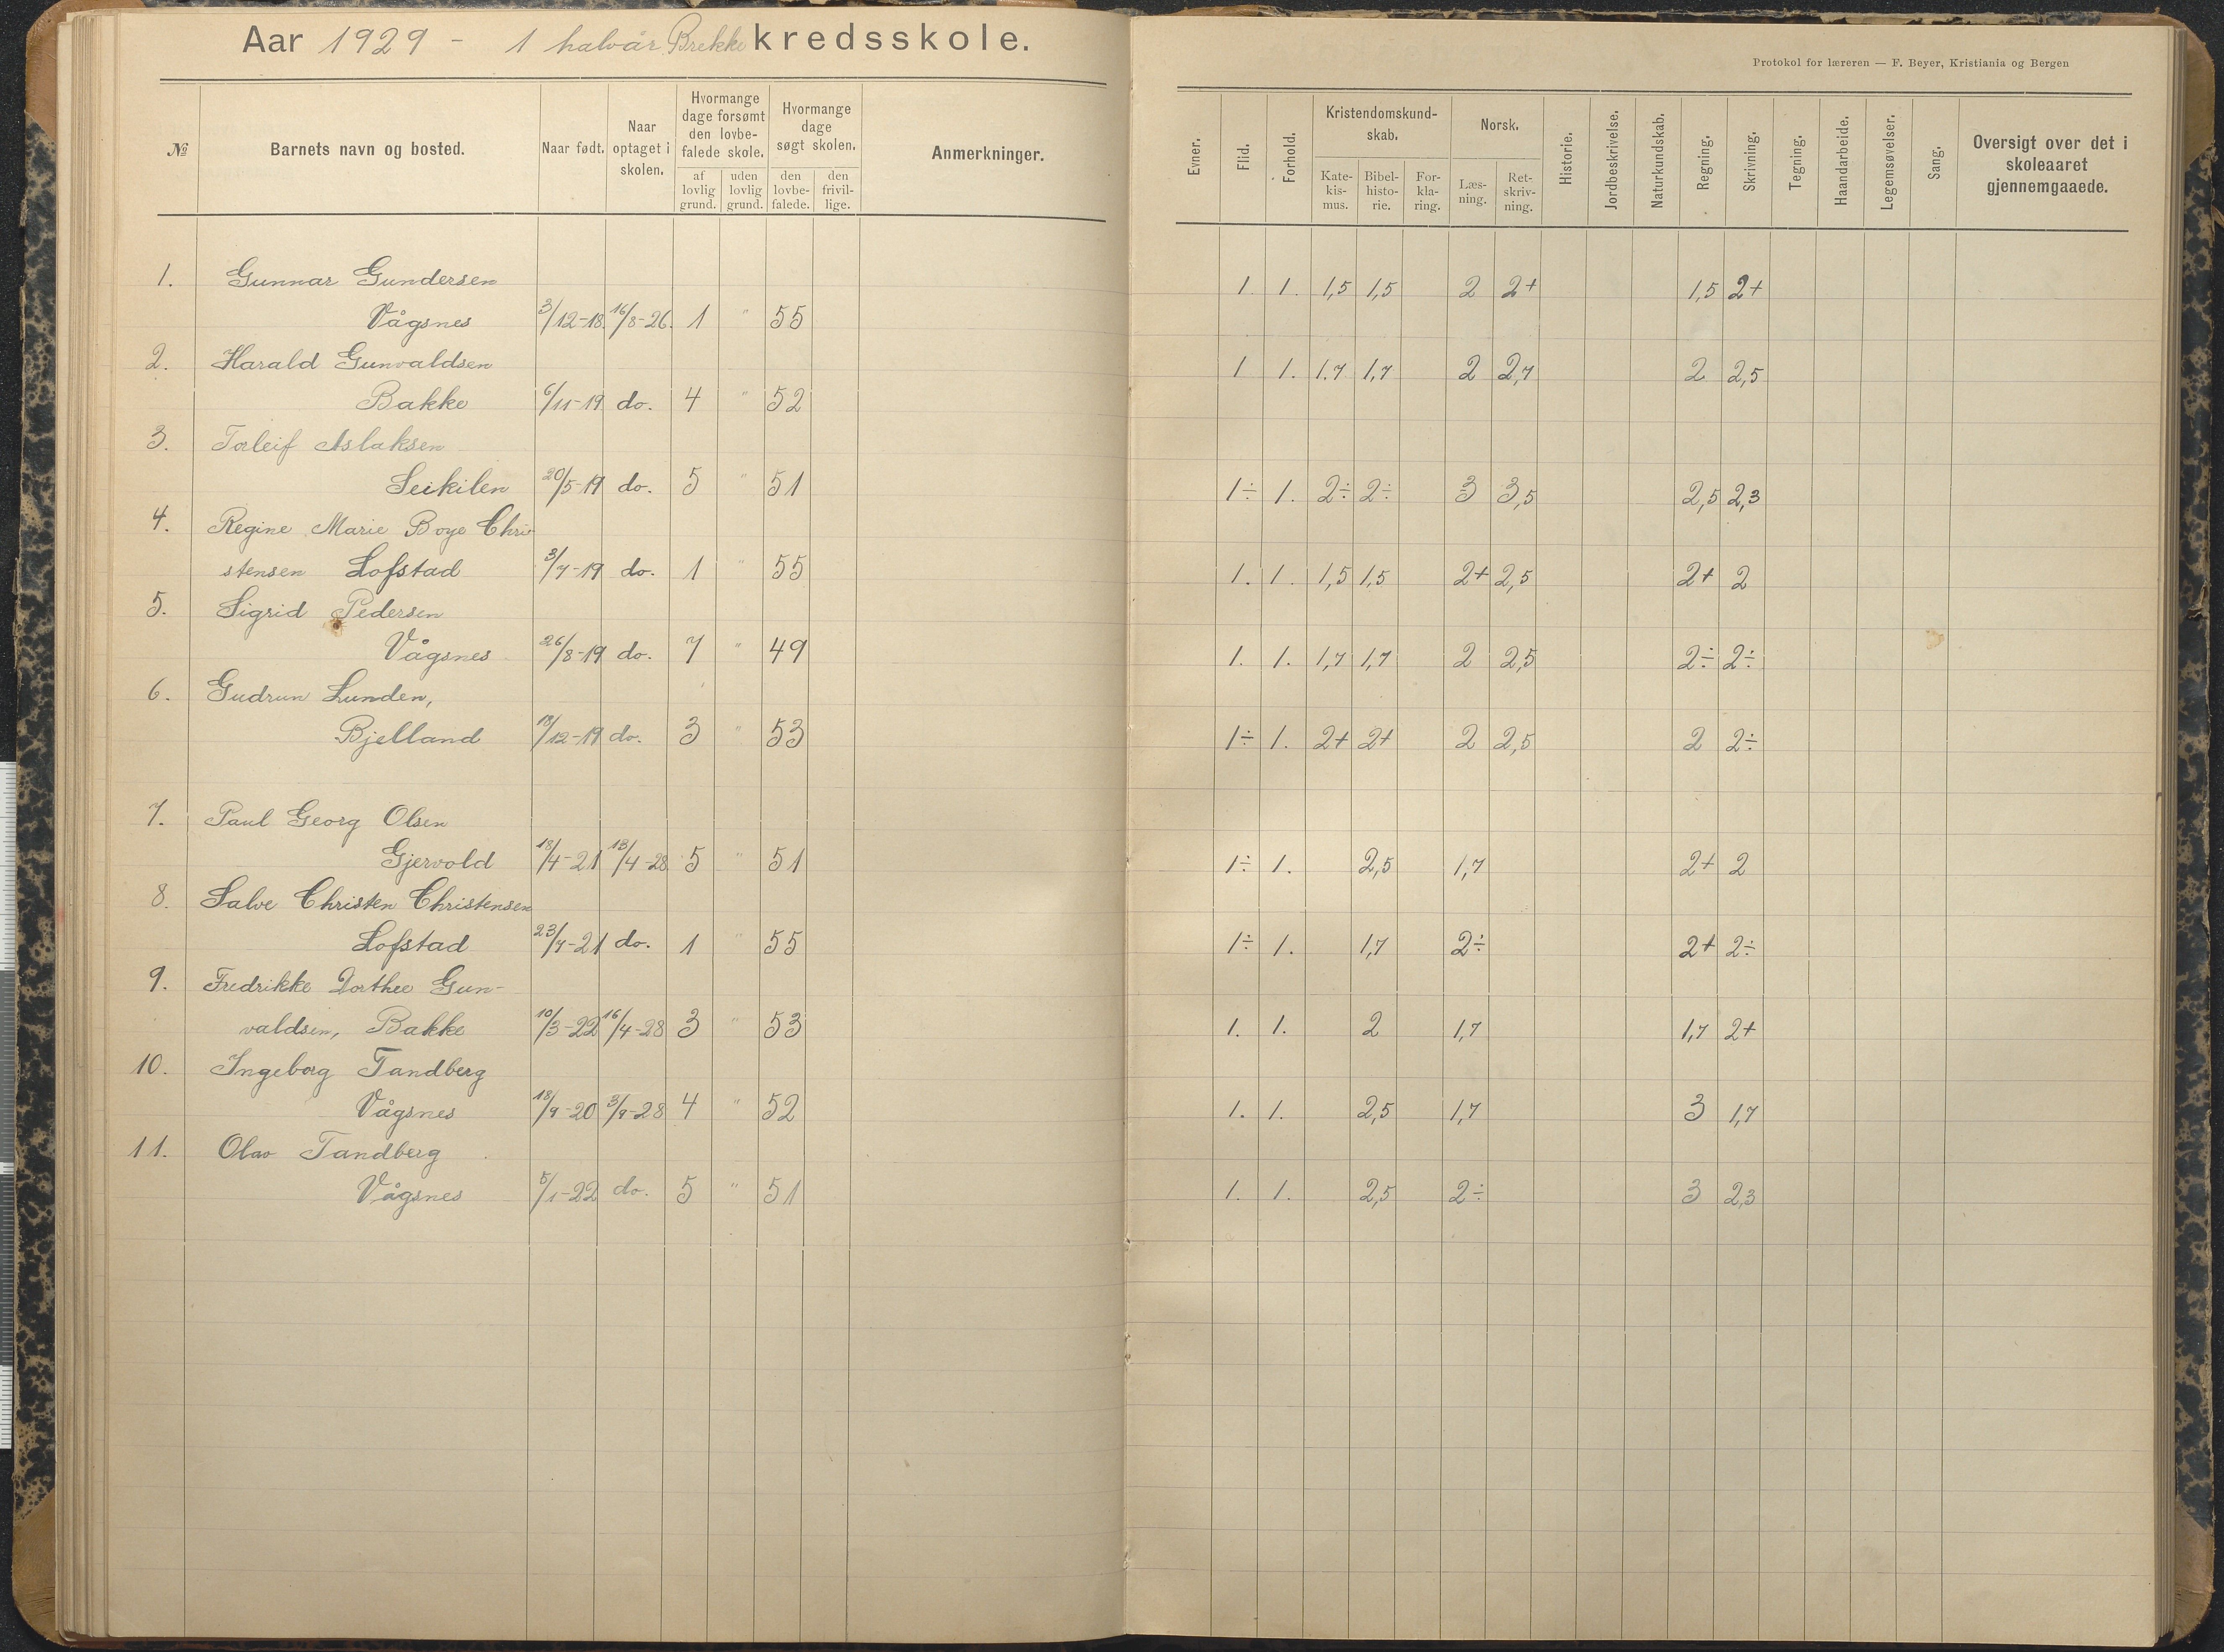 Aar 1929 - 1 halvår Brekke kredsskole.
Protokol for læreren — F. Beyer, Kristiania og Bergen
№ Barnets navn og bosted. Naar født. Naar optaget i skolen. Hvormange dage forsømt den lovbefalede skole. af lovlig grund. uden lovlig grund. Hvormange dage søgt skolen. den lovbefalede. den frivillige. Anmerkninger.
Evner. Flid. Forhold. Kristendomskundskab. Katekismus. Bibelhistorie. Forklaring. Norsk. Læsning. Retskrivning. Historie. Jordbeskrivelse. Naturkundskab. Regning. Skrivning. Tegning. Haandarbeide. Legemsøvelser. Sang. Oversigt over det i skoleaaret gjennemgaaede.
1. Gunnar Gundersen 1 1. 1,5 1,5 2 2+ 1,5 2+
Vågsnes 3/12-18. 16/8-26. 1 " 55
2. Harald Gunvaldsen 1 1. 1.7 1,7 2 2,7 2 2,5
Bakke 6/11-19 do. 4 " 52
3. Torleif Aslaksen
Leikilen 20/5-19 do. 5 " 51 1÷ 1. 2÷ 2÷ 3 3,5 2,5 2,3
4. Regine Marie Boye Chri-
stensen Lofstad 3/7-19 do. 1 " 55 1. 1. 1,5 1,5 2+ 2,5 2+ 2
5. Sigrid Pedersen
Vågsnes 26/8-19 do. 7 " 49 1. 1. 1,7 1,7 2 2,5 2÷ 2÷
6. Gudrun Lunden,
Bjelland 18/12-19 do. 3 " 53 1÷ 1. 2+ 2+ 2 2,5 2 2÷
7. Paul Georg Olsen
Gjervold 18/4-21 13/4-28 5 " 51 1÷ 1. 2,5 1,7 2+ 2
8. Salve Christen Christensen
Lofstad 23/7-21 do. 1 " 55 1÷ 1. 1,7 2÷ 2+ 2÷
9. Fredrikke Dorthee Gun-
valdsen, Bakke 10/3-22 16/4-28 3 " 53 1. 1. 2 1,7 1,7 2+
10. Ingeborg Tandberg
Vågsnes 18/9-20 3/9-28 4 " 52 1. 1. 2,5 1,7 3 1,7
11. Olav Tandberg
Vågsnes 5/1-22 do. 5 " 51 1. 1. 2,5 2÷ 3 2,3